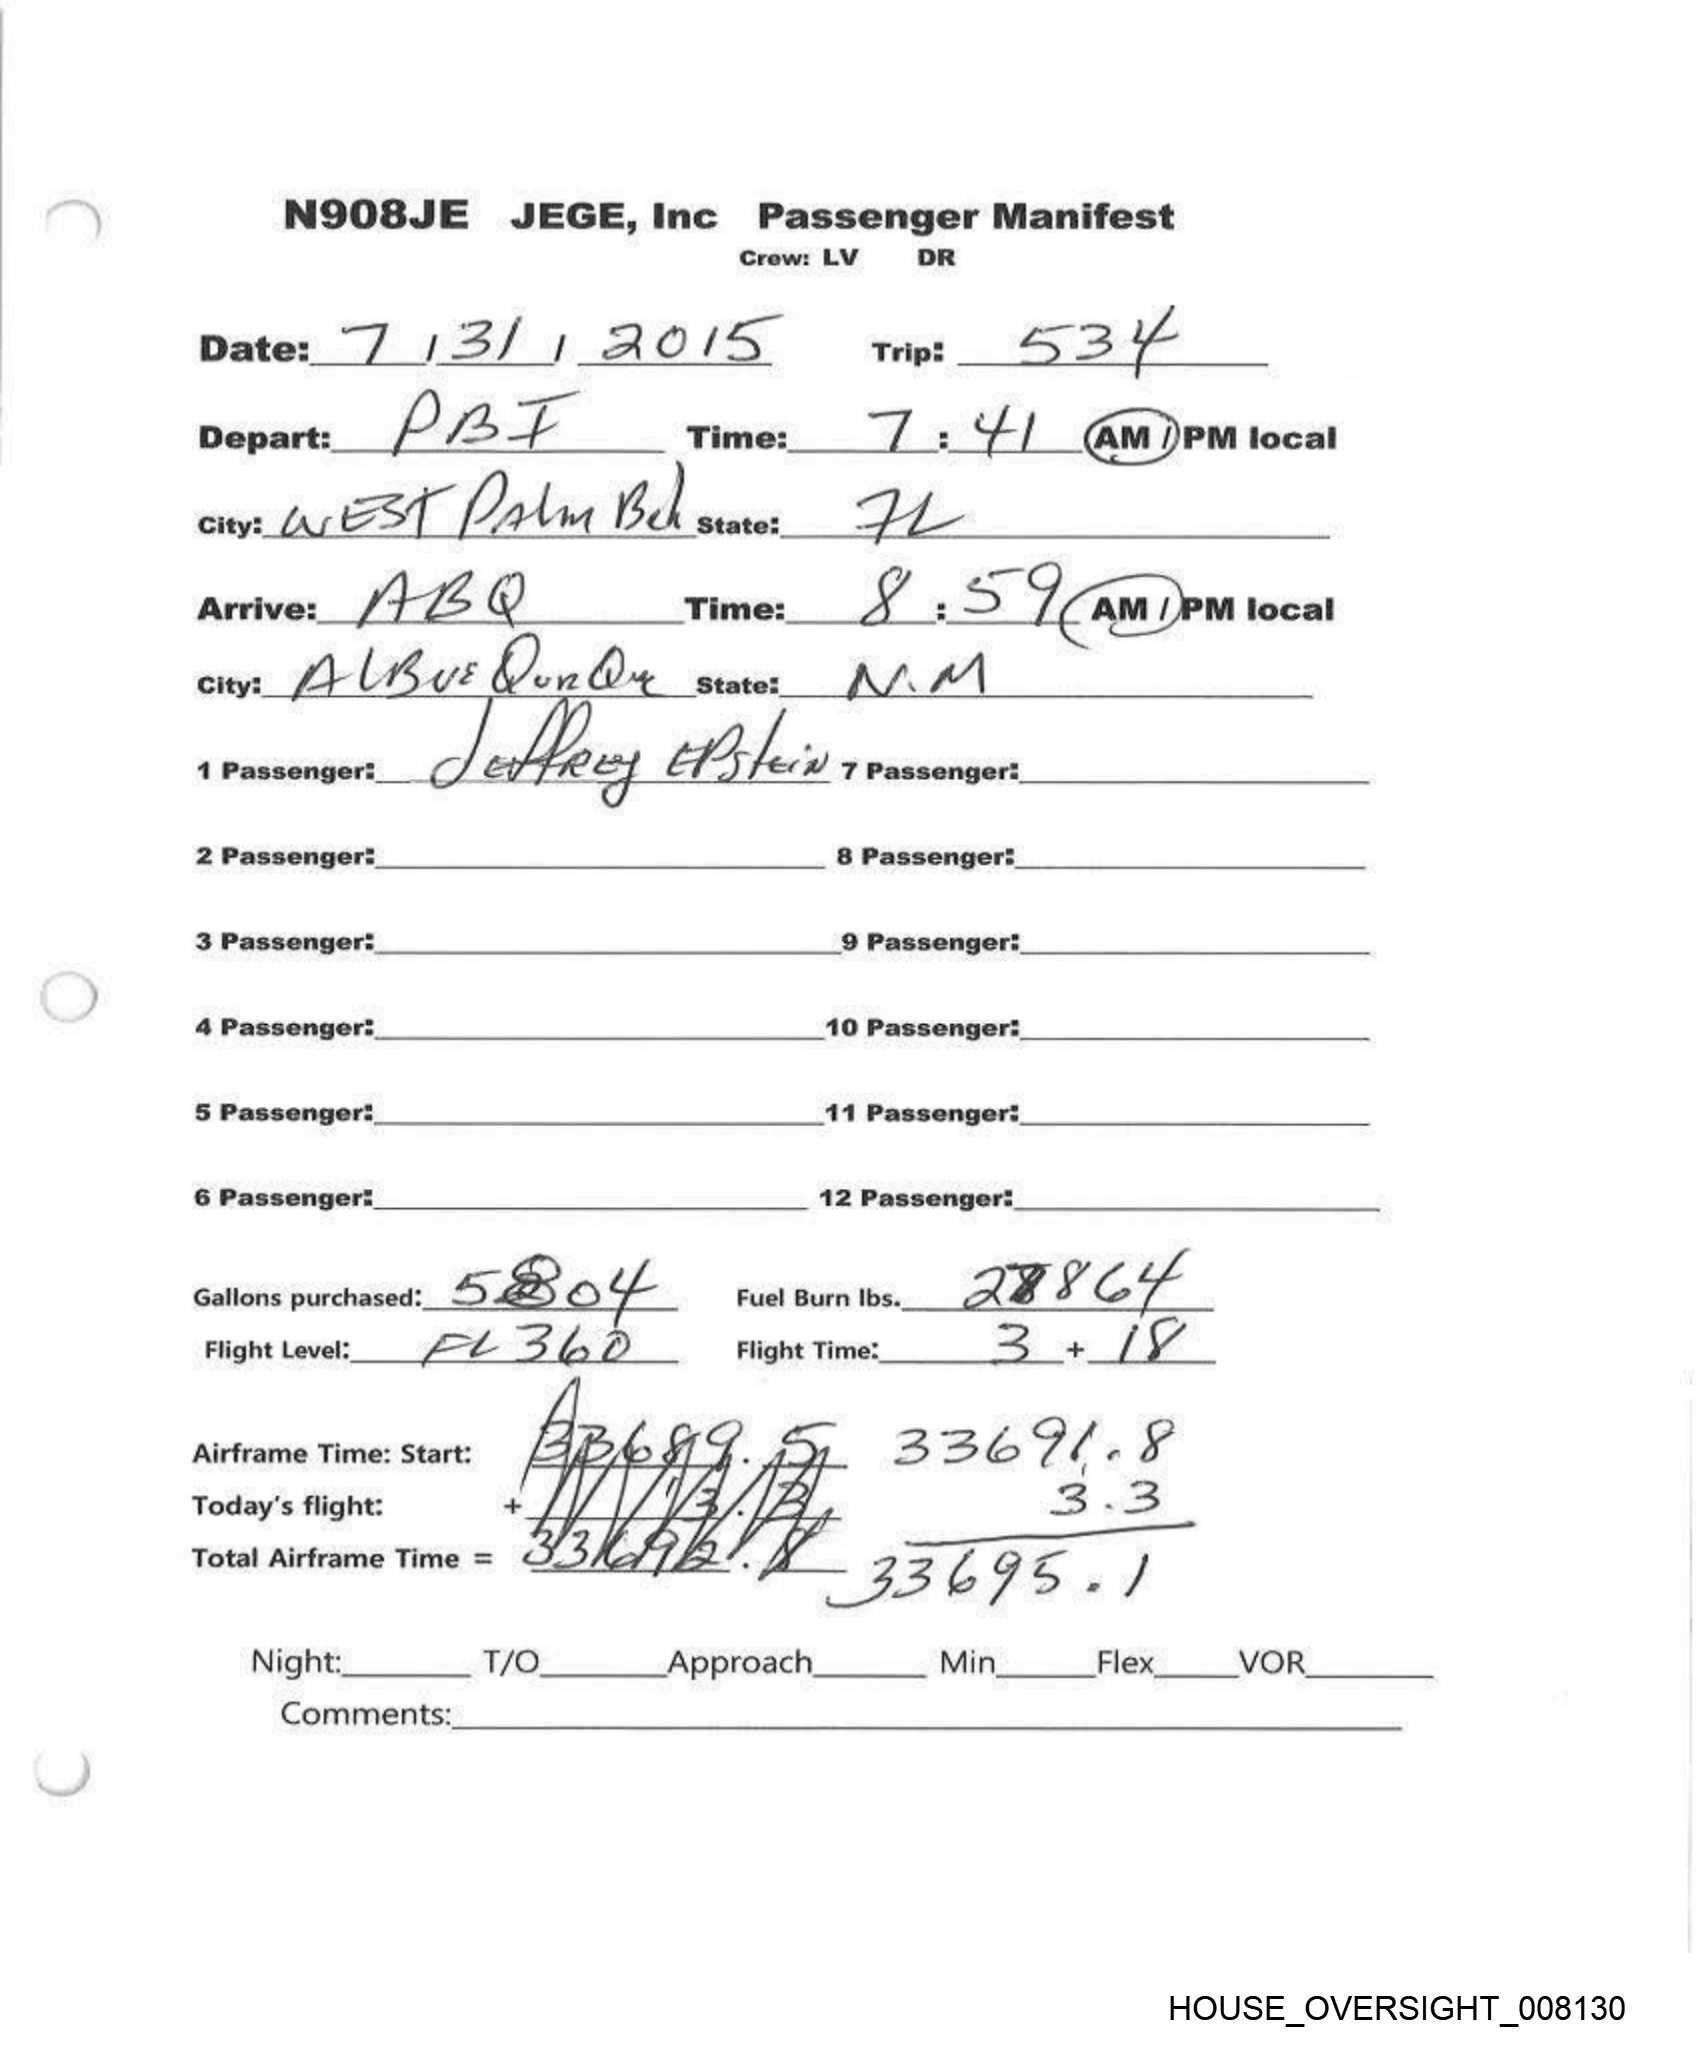 N908JE JEGE, Inc Passenger Manifest
Crew: LV DR
Date: 7 / 31 / 2015 Trip: 534
Depart: PBI Time: 7 : 41 AM / PM local
City: WEST PAlm Bch State: FL
Arrive: ABQ Time: 8 : 59 AM / PM local
City: AlBuE QurQue State: N.M
1 Passenger: JEffREy EPstEiN 7 Passenger:
2 Passenger: 8 Passenger:
3 Passenger: 9 Passenger:
4 Passenger: 10 Passenger:
5 Passenger: 11 Passenger:
6 Passenger: 12 Passenger:
Gallons purchased: 5804 Fuel Burn lbs. 27864
Flight Level: FL 360 Flight Time: 3 + 18
Airframe Time: Start: 33689.5 33691.8
Today's flight: + 3.3 3.3
Total Airframe Time = 33692.8 33695.1
Night: T/O Approach Min Flex VOR
Comments:
HOUSE_OVERSIGHT_008130